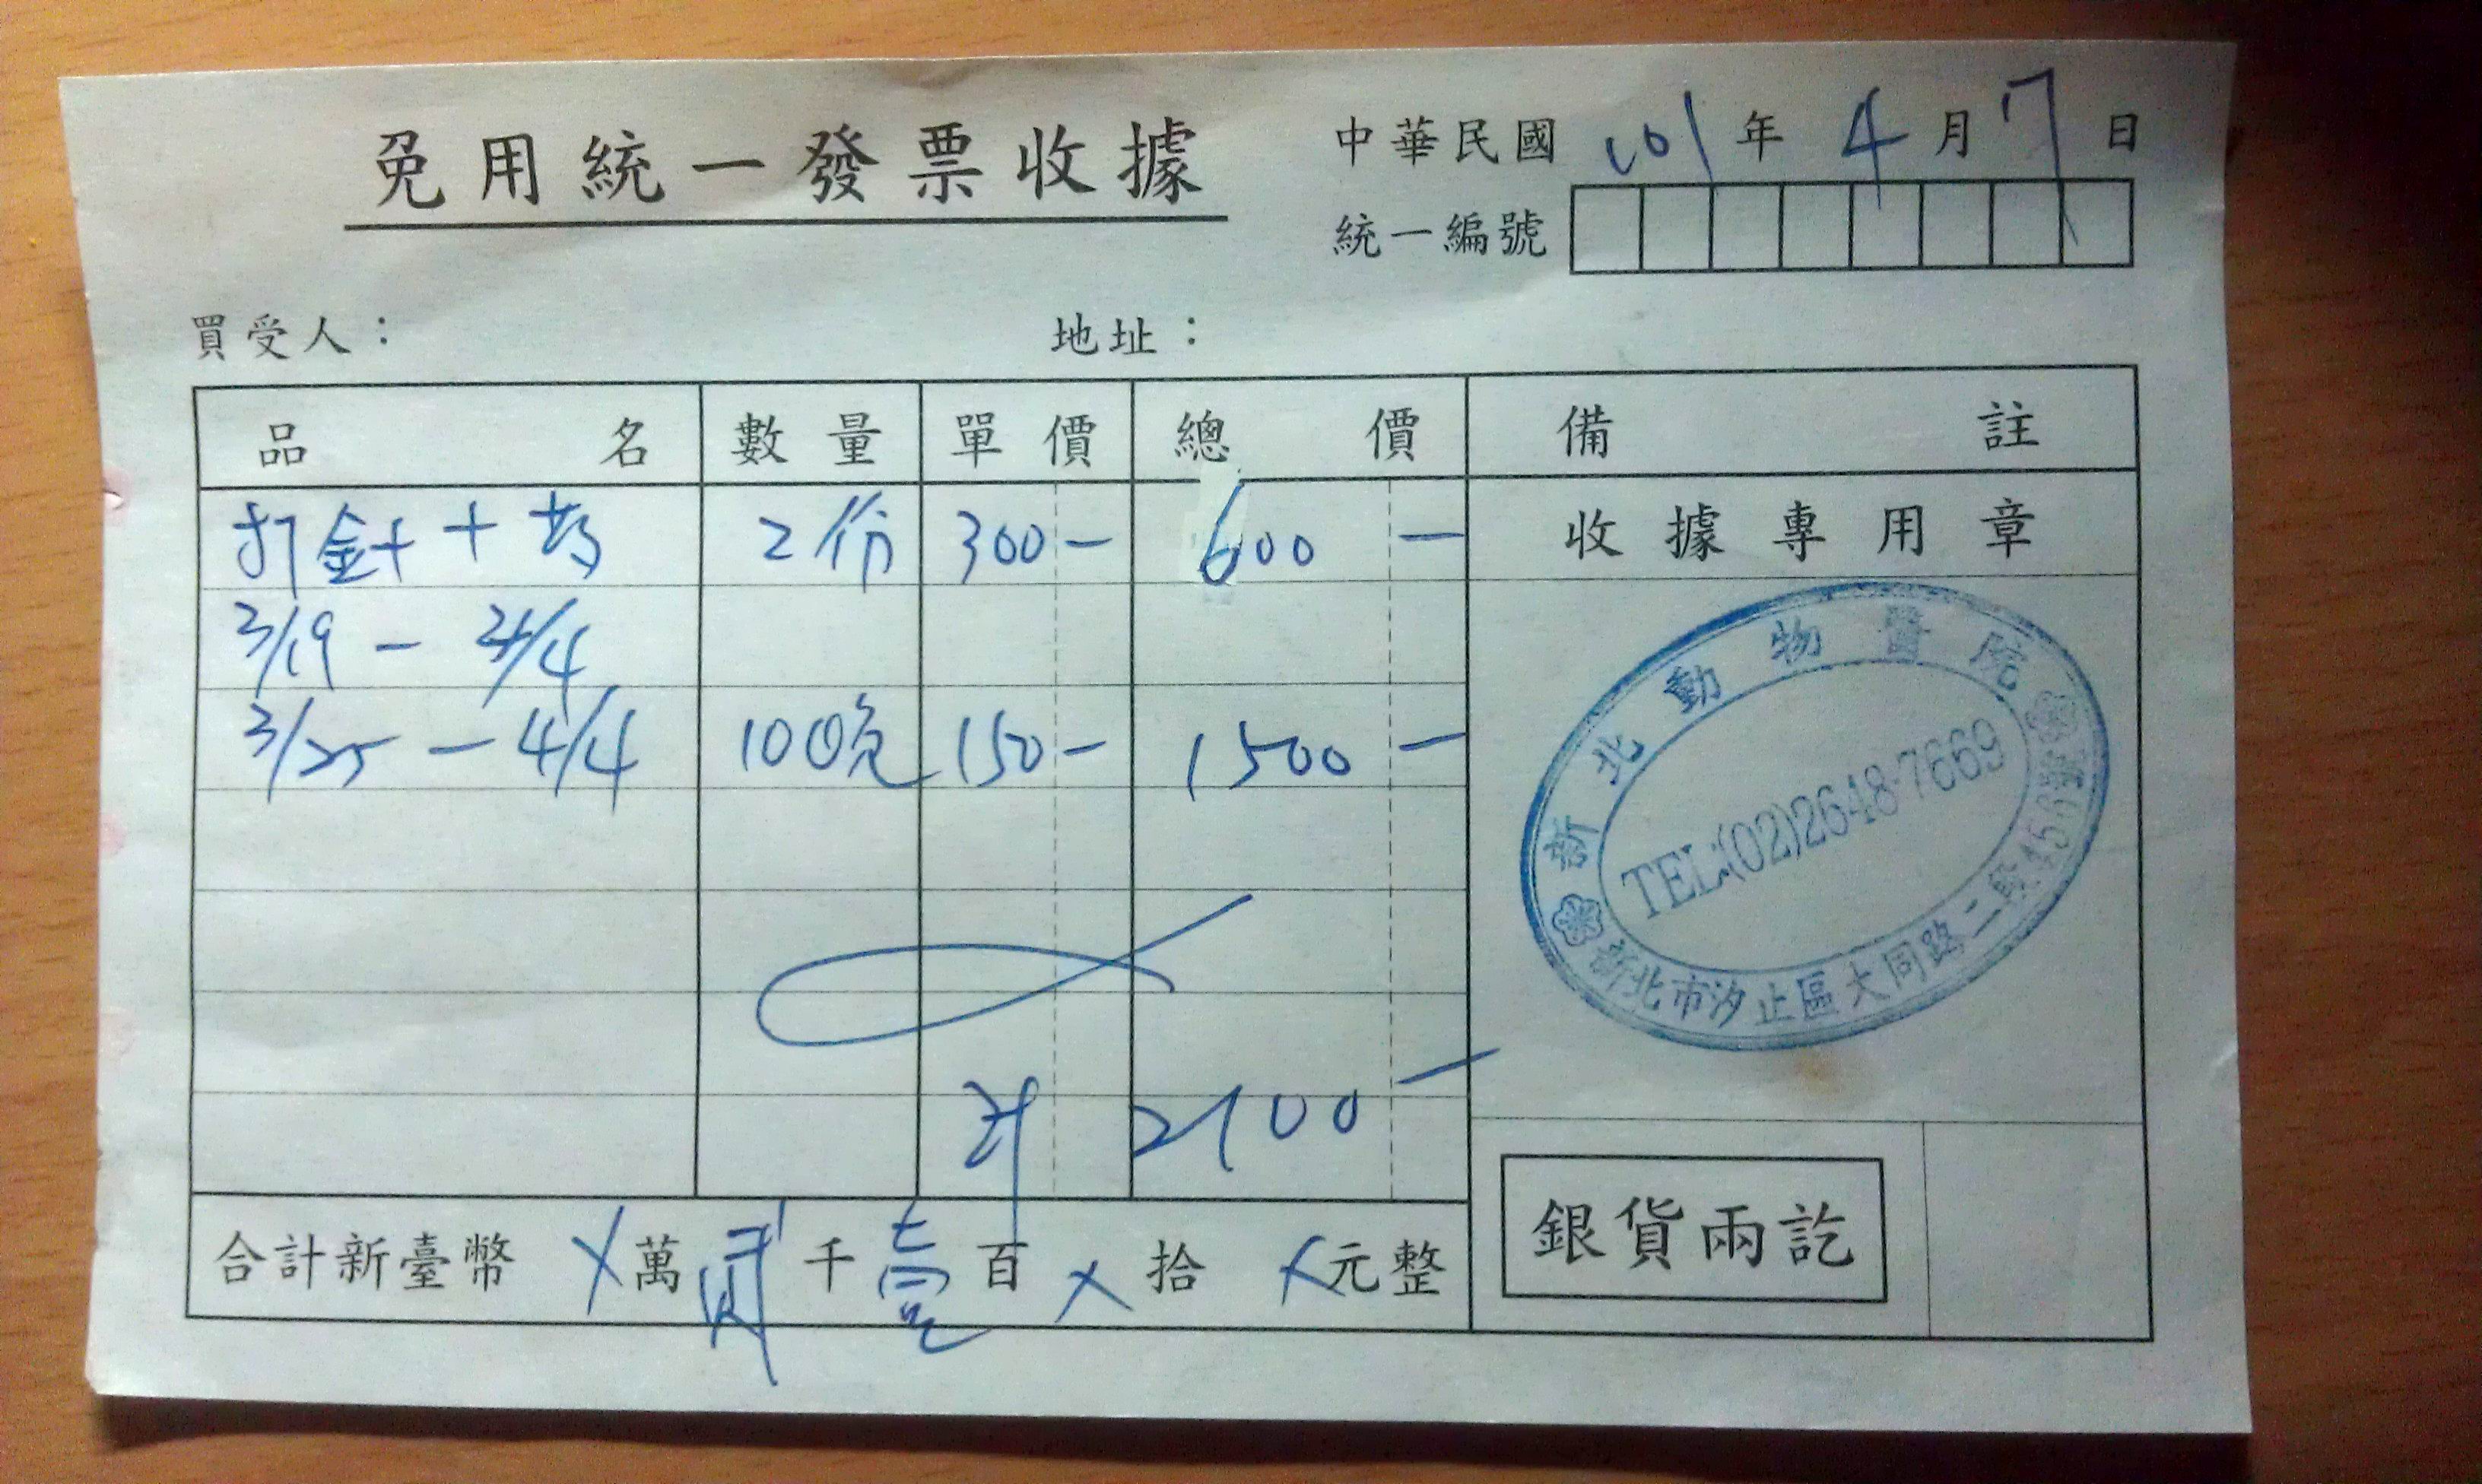 免用統一發票收據
中華民國 101 年 4 月 7 日
統一編號
買受人：
地址：
品名 數量 單價 總價 備註
打針+葯 2份 300- 600 -
收據專用章
3/19 - 24/4
3/25 - 4/4 10 150- 1500 -
計 2100 -
新北動物醫院
TEL:(02)2648-7669
新北市汐止區大同路二段
合計新臺幣 X萬貳千壹百X拾X元整
銀貨兩訖